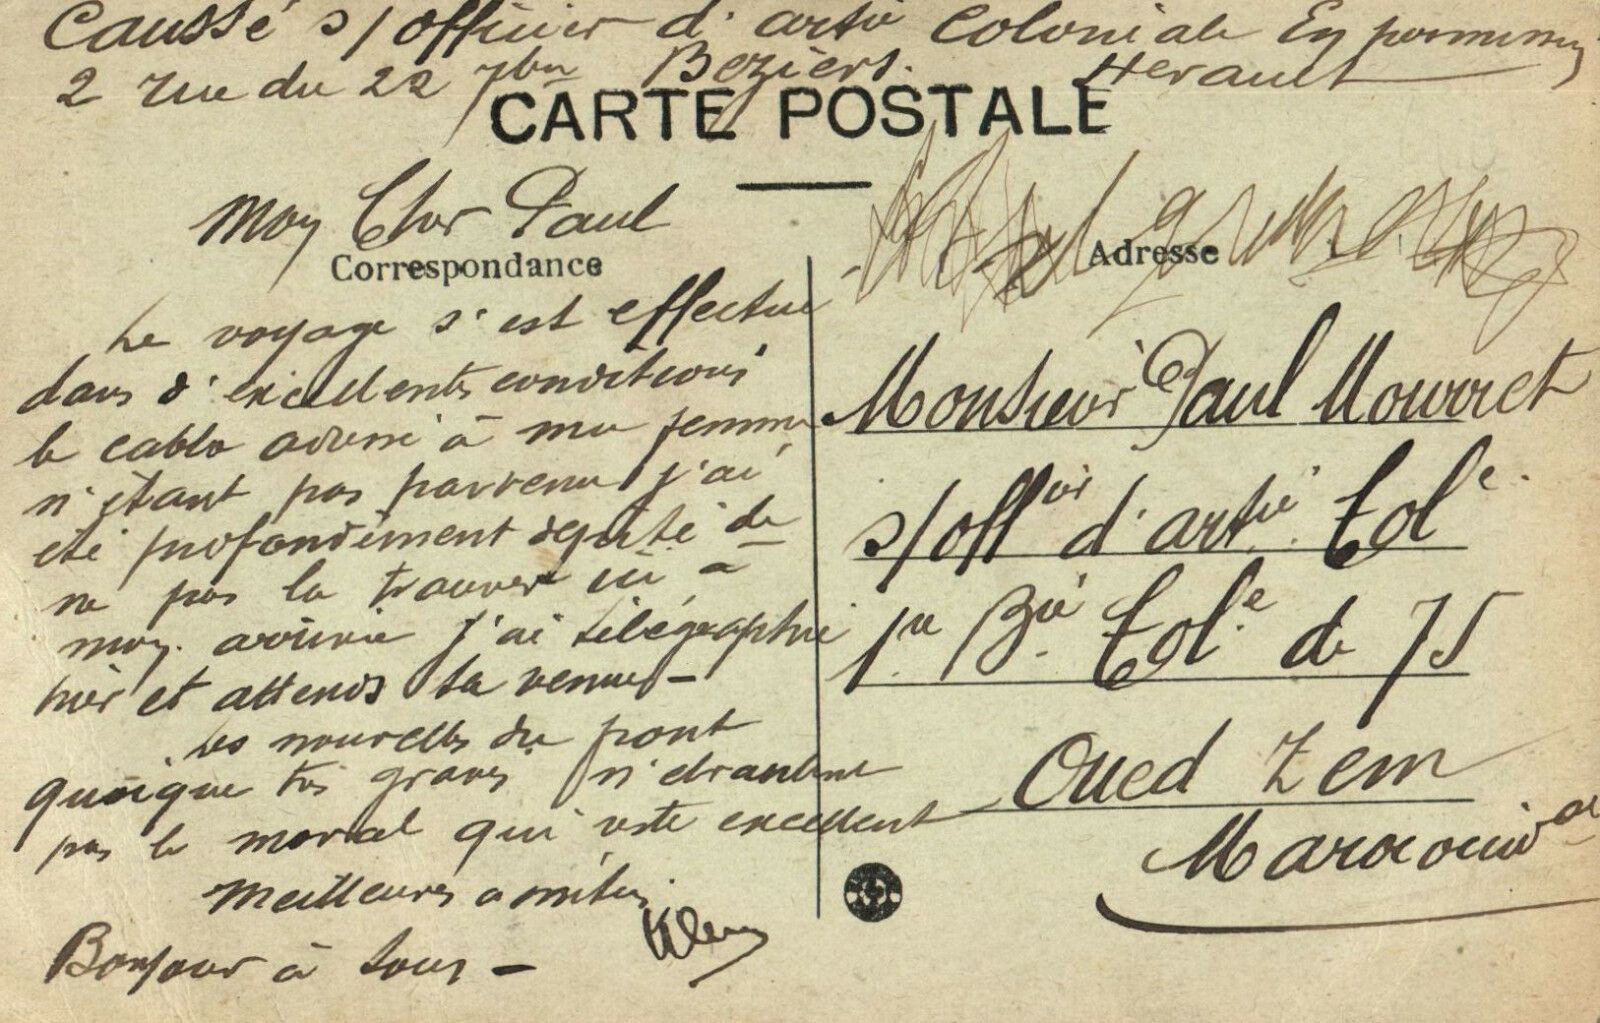 Caussé s/officier d'artie Coloniale En permission
2 rue du 22 7bre Beziers. Herault
CARTE POSTALE
Mon Cher Paul
Correspondance
Adresse
Le voyage s'est effectue
dans d'excellents conditions
le cable adressé à ma femme
n'etant pas parvenu j'ai
eté profondement depité de
ne pas la trouver ici à
mon arrivée j'ai télégraphié
hier et attends sa venue -
Les nouvelles du front
quoique très graves n'ebranlent
pas le moral qui reste excellent
Meilleures amitiés.
Bonjour à tous -
Monsieur Paul Mouret
s/offier d'artie Cole.
1re Bie Cole de 75
Oued Zem
Maroc occidal